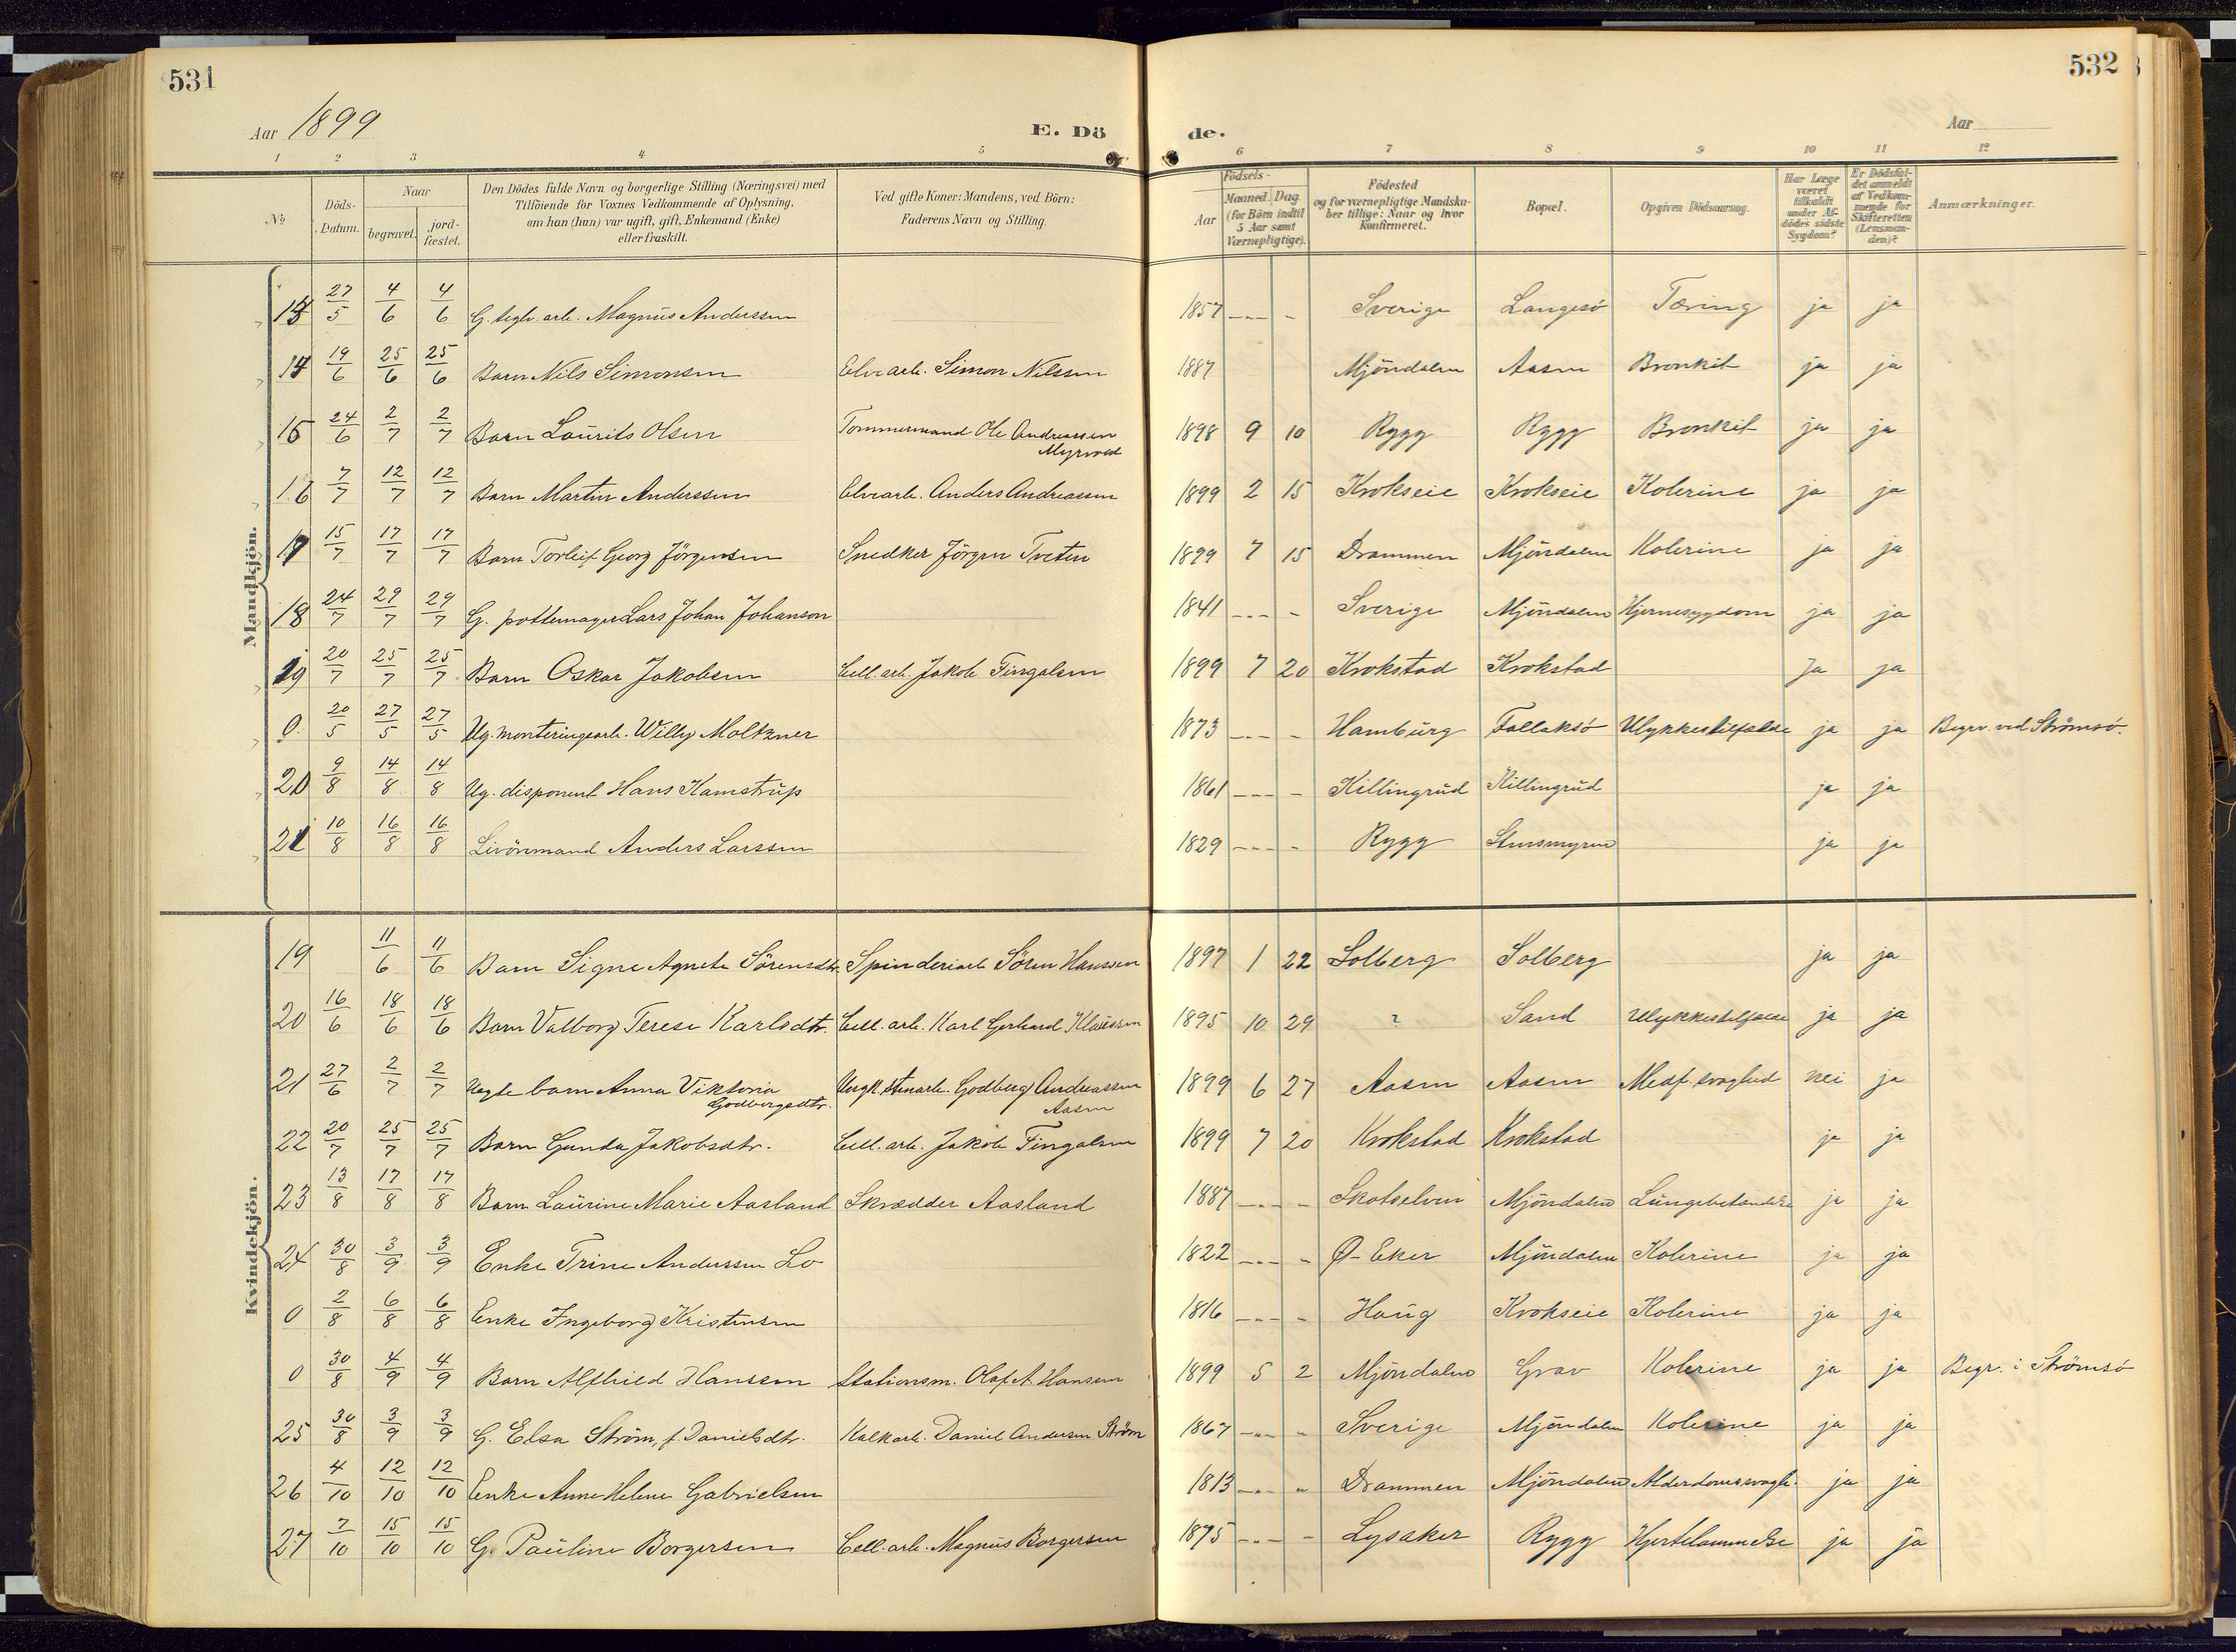 531
532
Aar 1899
E. Dö
de.
Aar
1 2 3 4 5 6 7 8 9 10 11 12
No
Döds-Datum.
Naar
begravet.
jord-fæstet.
Den Dödes fulde Navn og borgerlige Stilling (Næringsvei) med
Tilföiende for Voxnes Vedkommende af Oplysning,
om han (hun) var ugift, gift, Enkemand (Enke)
eller fraskilt.
Ved gifte Koner: Mandens, ved Börn:
Faderens Navn og Stilling.
Födsels-
Aar
Maaned. Dag.
(for Börn indtil
5 Aar samt
Værnepligtige).
Födested
og for værnepligtige Mandska-
ber tillige: Naar og hvor
Konfirmeret.
Bopæl.
Opgiven Dödsaarsag.
Har Læge
været
tilkaldt
under Af-
dödes sidste
Sygdom?
Er Dödsfal-
det anmeldt
af Vedkom-
mende for
Skifteretten
(Lensman-
den)?
Anmærkninger.
Mandkjön.
13 27/5 4/6 4/6 G. teglv. arb. Magnus Anderssen 1857 --- - Sverige Langesö Tæring ja ja
14 19/6 25/6 25/6 Barn Nils Simonsen Elvearb. Simon Nilssen 1887 Mjöndalen Aasen Bronkit ja ja
15 24/6 2/7 2/7 Barn Laurits Olsen Tommermand Ole Andreassen 1898 9 10 Rygg Rygg Bronkit ja ja
Myrvold
16 7/7 12/7 12/7 Barn Martin Anderssen Elvearb. Anders Andreassen 1899 2 15 Krokseie Krokseie Kolerine ja ja
17 15/7 17/7 17/7 Barn Torleif Georg Jörgensen Snedker Jörgen Tveten 1899 7 15 Drammen Mjöndalen Kolerine ja ja
18 24/7 29/7 29/7 G. pottemager Lars Johan Johanson 1841 --- - Sverige Mjöndalen Hjernesygdom ja ja
19 20/7 25/7 25/7 Barn Oskar Jakobsen Cell. arb. Jakob Fingalsen 1899 7 20 Krokstad Krokstad Ja ja
0. 20/5 27/5 27/5 Ug. monteringsarb. Willy Moltzner 1873 --- - Hamburg Follaksö Ulykkestilfælde ja ja Begrv. ved Strömsö.
20 9/8 14/8 14/8 Ug. disponent Hans Kamstrup 1861 --- - Killingrud Killingrud ja ja
21 10/8 16/8 16/8 Livörmand Anders Larssen 1829 --- - Rygg Stensmyren ja ja
Kvindekjön.
19 11/6 11/6 Barn Signe Agnete Sörensdtr. Spinderiarb Sören Hanssen 1897 1 22 Solberg Solberg ja ja
20 16/6 18/6 18/6 Barn Valborg Terese Karlsdtr. Cell. arb. Karl Gerhard Klaussen 1895 10 29 ? Sand Ulykkestilfælde ja ja
21 27/6 2/7 2/7 Uegte barn Anna Viktoria Ungk. stenarb. Godberg Andreassen 1899 6 27 Aasen Aasen Medf. svaghed nei ja
Godbergsdtr. Aasen
22 20/7 25/7 25/7 Barn Gunda Jakobsdtr. Cell. arb. Jakob Fingalsen 1899 7 20 Krokstad Krokstad ja ja
23 13/8 17/8 17/8 Barn Laurine Marie Aasland Skrædder Aasland 1887 --- - Skotselven Mjöndalen Lungebetændelse ja ja
24 30/8 3/9 3/9 Enke Trine Anderssen Lo 1822 --- - Ø-Eker Mjöndalen Kolerine ja ja
0 2/8 6/8 6/8 Enke Ingeborg Kristensen 1816 --- - Haug Krokseie Kolerine ja ja
0 30/8 4/9 4/9 Barn Alfhild Hansen Stationsm. Olaf A. Hansen 1899 5 2 Mjöndalen Grav Kolerine ja ja Begr. i Strömsö
25 30/8 3/9 3/9 G. Elsa Ström, f. Danielsdtr. Kalkarb. Daniel Andersen Ström 1867 --- - Sverige Mjöndalen Kolerine ja ja
26 4/10 12/10 12/10 Enke Anne Helene Gabrielsen 1813 --- - Drammen Mjöndalen Alderdomssvagh. ja ja
27 7/10 15/10 15/10 G. Pauline Borgersen Cell. arb. Magnus Borgersen 1875 --- - Lysaker Rygg Hjertelammelse ja ja